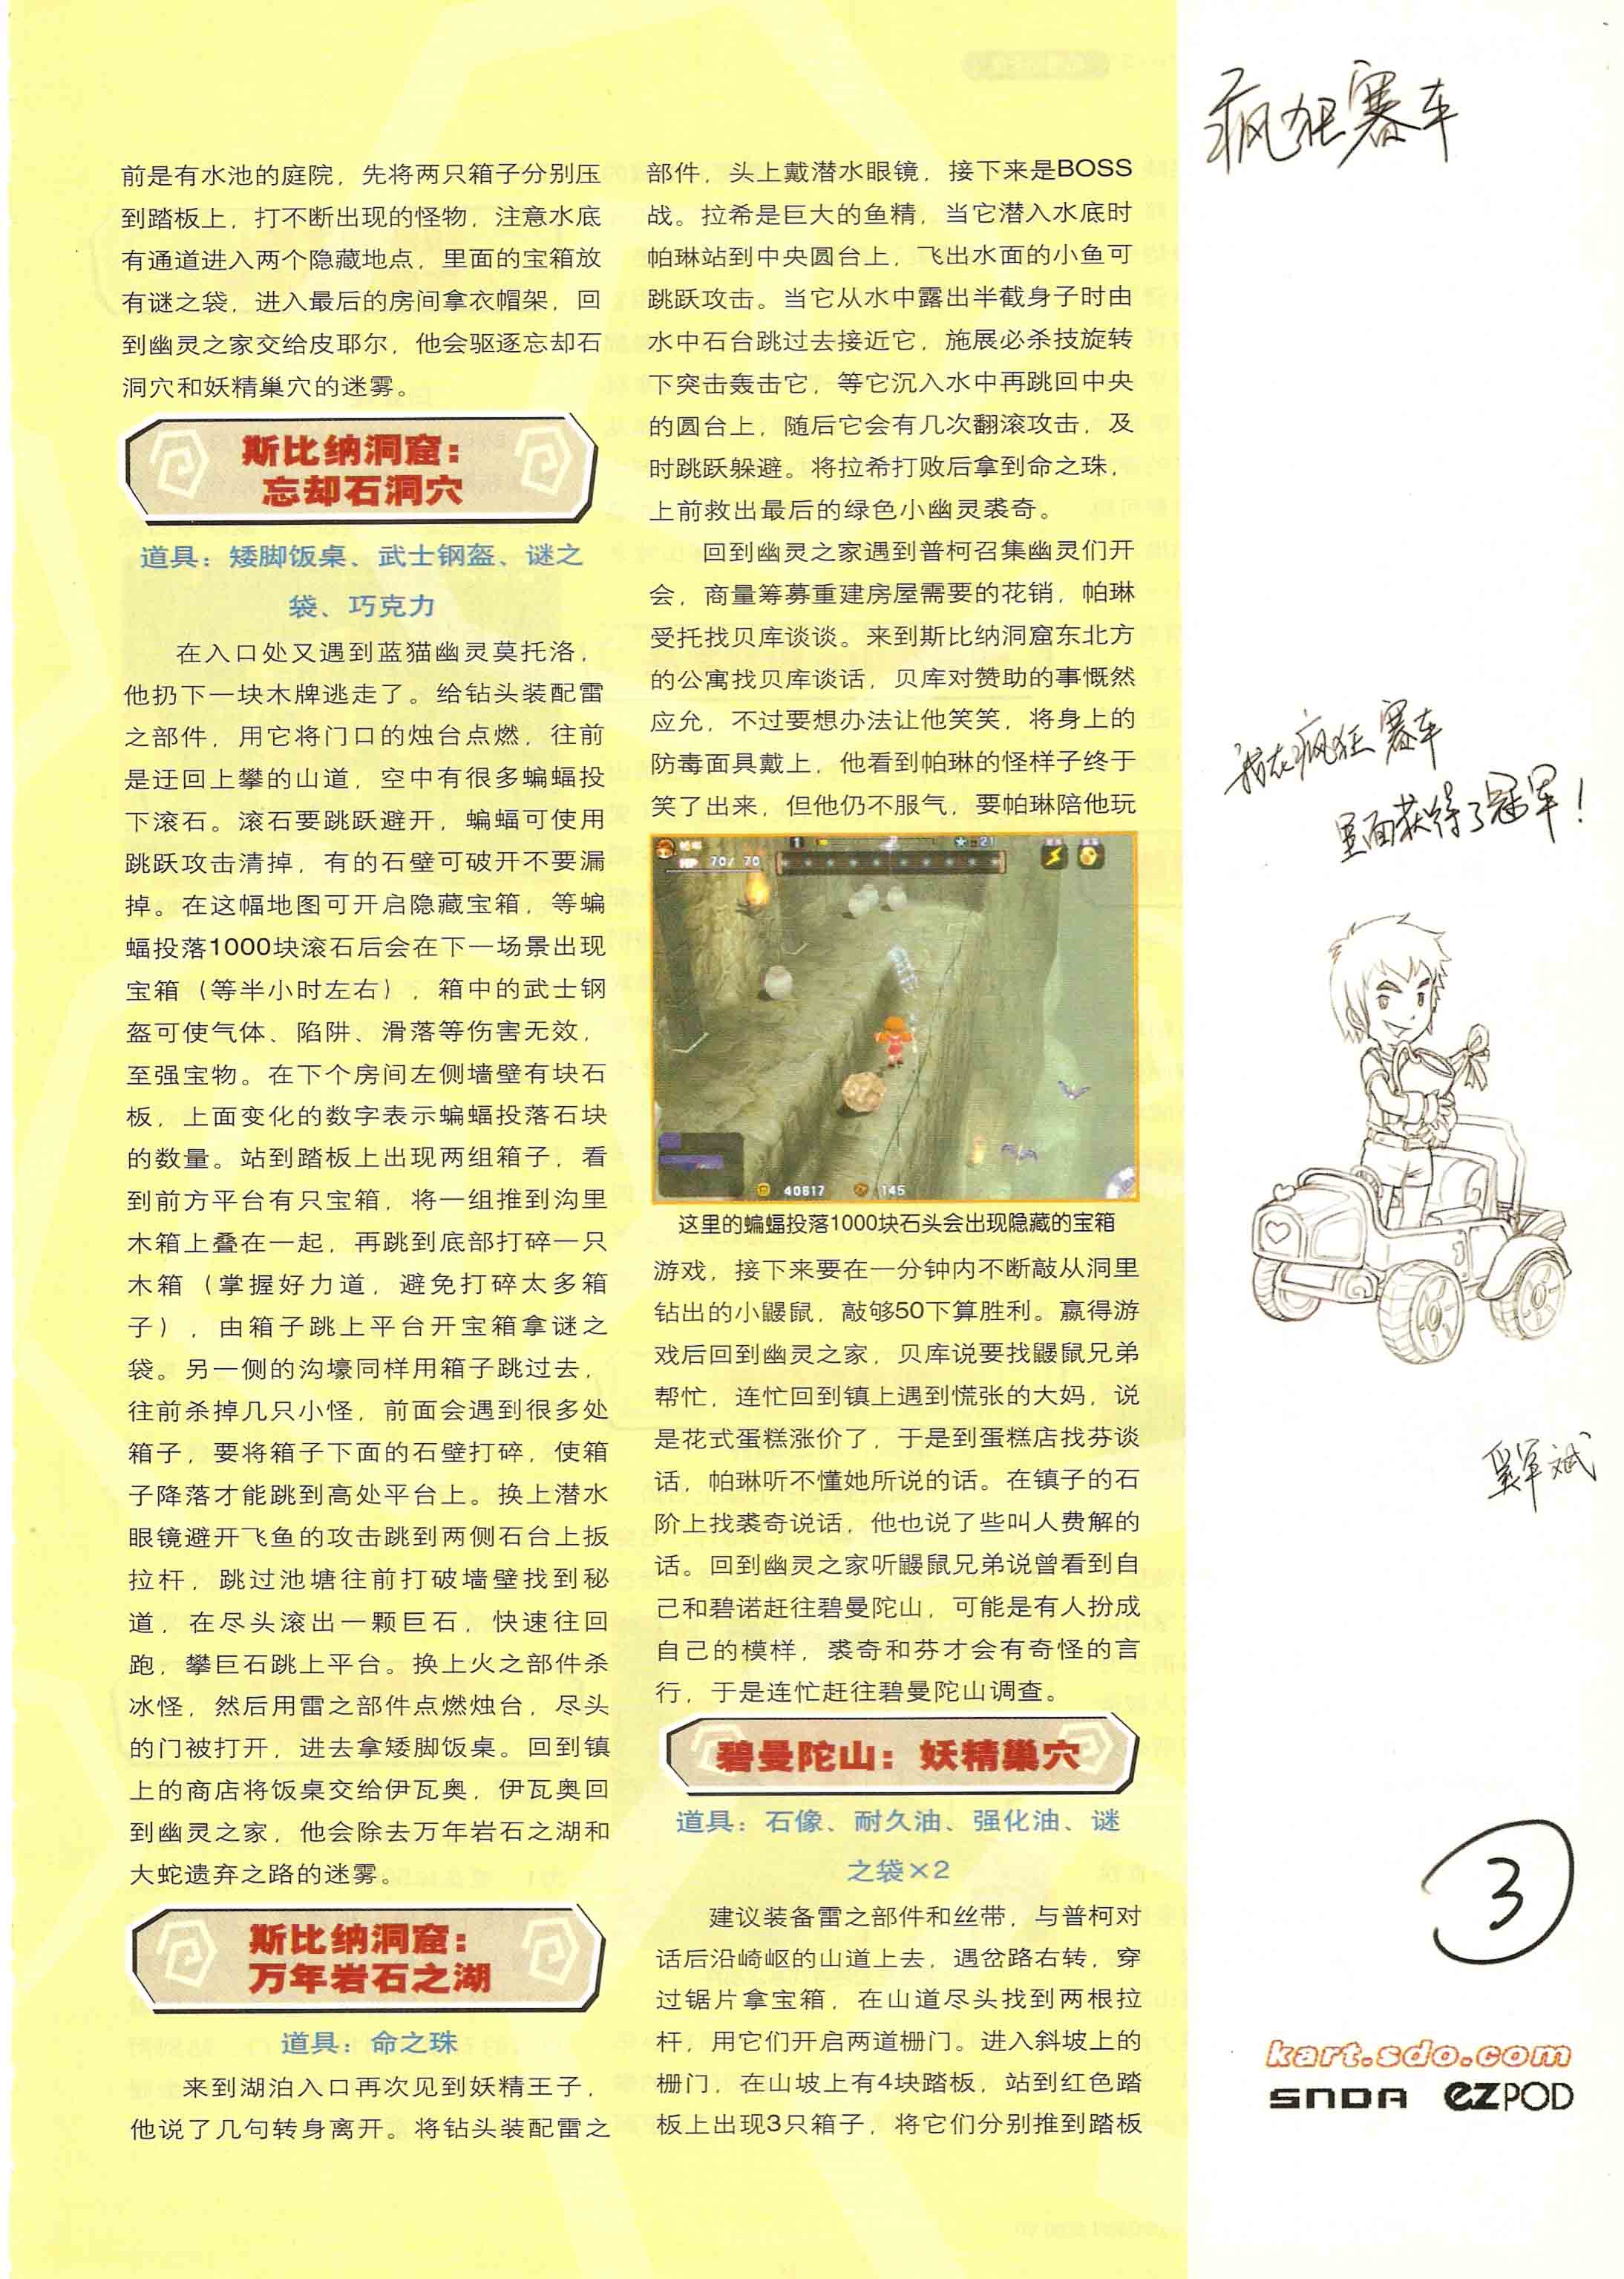 前是有水池的庭院，先将两只箱子分别压
到踏板上，打不断出现的怪物，注意水底
有通道进入两个隐藏地点，里面的宝箱放
有谜之袋，进入最后的房间拿衣帽架，回
到幽灵之家交给皮耶尔，他会驱逐忘却石
洞穴和妖精巢穴的迷雾。
斯比纳洞窟：
忘却石洞穴
道具：矮脚饭桌、武士钢盔、谜之
袋、巧克力
在入口处又遇到蓝猫幽灵莫托洛，
他扔下一块木牌逃走了。给钻头装配雷
之部件，用它将门口的烛台点燃，往前
是迂回上攀的山道，空中有很多蝙蝠投
下滚石。滚石要跳跃避开，蝙蝠可使用
跳跃攻击清掉，有的石壁可破开不要漏
掉。在这幅地图可开启隐藏宝箱，等蝙
蝠投落1000块滚石后会在下一场景出现
宝箱（等半小时左右），箱中的武士钢
盔可使气体、陷阱、滑落等伤害无效，
至强宝物。在下个房间左侧墙壁有块石
板，上面变化的数字表示蝙蝠投落石块
的数量。站到踏板上出现两组箱子，看
到前方平台有只宝箱，将一组推到沟里
木箱上叠在一起，再跳到底部打碎一只
木箱（掌握好力道，避免打碎太多箱
子），由箱子跳上平台开宝箱拿谜之
袋。另一侧的沟壕同样用箱子跳过去，
往前杀掉几只小怪，前面会遇到很多处
箱子，要将箱子下面的石壁打碎，使箱
子降落才能跳到高处平台上。换上潜水
眼镜避开飞鱼的攻击跳到两侧石台上扳
拉杆，跳过池塘往前打破墙壁找到秘
道，在尽头滚出一颗巨石，快速往回
跑，攀巨石跳上平台。换上火之部件杀
冰怪，然后用雷之部件点燃烛台，尽头
的门被打开，进去拿矮脚饭桌。回到镇
上的商店将饭桌交给伊瓦奥，伊瓦奥回
到幽灵之家，他会除去万年岩石之湖和
大蛇遗弃之路的迷雾。
斯比纳洞窟：
万年岩石之湖
道具：命之珠
来到湖泊入口再次见到妖精王子，
他说了几句转身离开。将钻头装配雷之
部件，头上戴潜水眼镜，接下来是BOSS
战。拉希是巨大的鱼精，当它潜入水底时
帕琳站到中央圆台上，飞出水面的小鱼可
跳跃攻击。当它从水中露出半截身子时由
水中石台跳过去接近它，施展必杀技旋转
下突击轰击它，等它沉入水中再跳回中央
的圆台上，随后它会有几次翻滚攻击，及
时跳跃躲避。将拉希打败后拿到命之珠，
上前救出最后的绿色小幽灵裘奇。
回到幽灵之家遇到普柯召集幽灵们开
会，商量筹募重建房屋需要的花销，帕琳
受托找贝库谈谈。来到斯比纳洞窟东北方
的公寓找贝库谈话，贝库对赞助的事慨然
应允，不过要想办法让他笑笑，将身上的
防毒面具戴上，他看到帕琳的怪样子终于
笑了出来，但他仍不服气，要帕琳陪他玩
HP 70/ 70
1
21
40617
145
这里的蝙蝠投落1000块石头会出现隐藏的宝箱
游戏，接下来要在一分钟内不断敲从洞里
钻出的小鼹鼠，敲够50下算胜利。赢得游
戏后回到幽灵之家，贝库说要找鼹鼠兄弟
帮忙，连忙回到镇上遇到慌张的大妈，说
是花式蛋糕涨价了，于是到蛋糕店找芬谈
话，帕琳听不懂她所说的话。在镇子的石
阶上找裘奇说话，他也说了些叫人费解的
话。回到幽灵之家听鼹鼠兄弟说曾看到自
己和碧诺赶往碧曼陀山，可能是有人扮成
自己的模样，裘奇和芬才会有奇怪的言
行，于是连忙赶往碧曼陀山调查。
碧曼陀山：妖精巢穴
道具：石像、耐久油、强化油、谜
之袋×2
建议装备雷之部件和丝带，与普柯对
话后沿崎岖的山道上去，遇岔路右转，穿
过锯片拿宝箱，在山道尽头找到两根拉
杆，用它们开启两道栅门。进入斜坡上的
栅门，在山坡上有4块踏板，站到红色踏
板上出现3只箱子，将它们分别推到踏板
疯狂赛车
我在疯狂赛车
里面获得了冠军！
3
kart.sdo.com
SNDA ezPOD